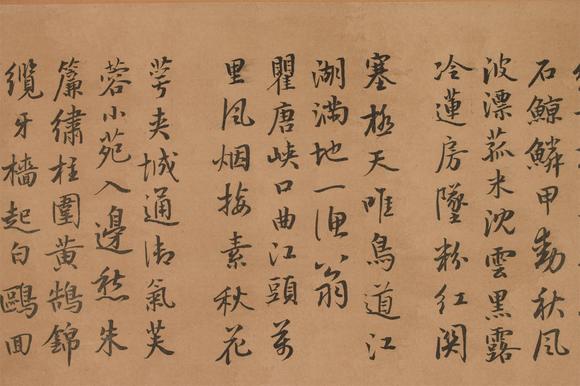 石鯨鱗甲動秋風
波漂菰米沈雲黑露
冷蓮房墜粉紅関
塞極天唯鳥道江
湖滿地一漁翁
瞿唐峽口曲江頭萬
里風烟接素秋花
萼夾城通御氣芙
蓉小苑入邊愁朱
簾繡柱圍黃鵠錦
纜牙檣起白鷗回